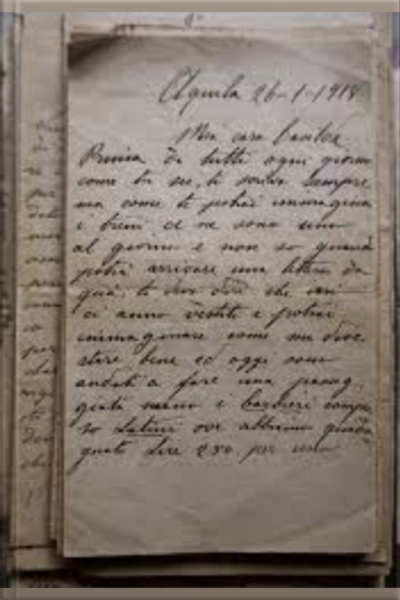 Aquila 26-1-1918
Mia cara
Prima di tutti ogni giorno
come tu sei, ti scrivo sempre
ma come te potrai immaginar
i treni ce ne sono uno
al giorno e non so quando
potrà arrivare una lettera da
quà, ti devo dire che ieri
ci anno vestiti e potrai
immaginare come mi deve
stare bene ed oggi sono
andati a fare una passeg
giata meno i barbieri compre
so Latini ove abbiamo guada
gnato Lire 2.50 per uno